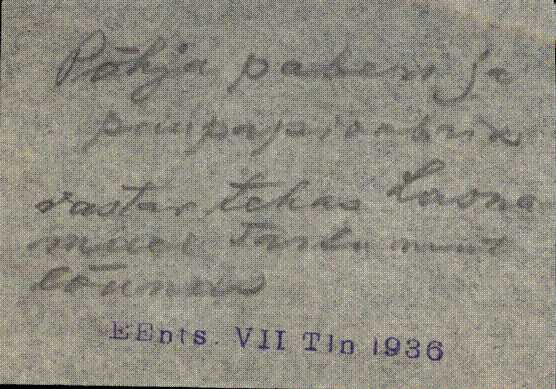 Põhja paberi ja
puupapivabrik
vastav tehas Lasna
mäel Tartu mnt
lõunas
EEnts. VII Tln 1936